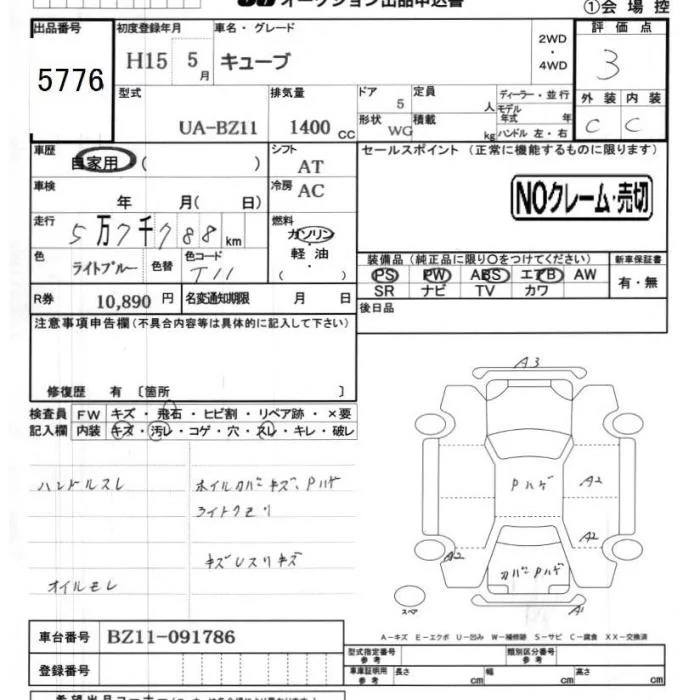 オークション出品申込書
①会場控
出品番号
5776
初度登録年月
H15 5月
車名・グレード
キューブ
2WD
・
4WD
評価点
3
型式
UA-BZ11
排気量
1400 CC
ドア
5
定員
人
形状
WG
積載
kg
ディーラー・並行
モデル
年式 年
ハンドル 左・右
外装 内装
C C
車歴
自家用 ( )
シフト
AT
車検
年 月( 日)
冷房
AC
走行
5万7千788km
燃料
ガソリン
・
軽油
( )
色
ライトブルー
色替
色コード
T11
R券
10,890 円
名変通知期限 月 日
セールスポイント (正常に機能するものに限ります)
NOクレーム・売切
装備品(純正品に限り○をつけてください)
PS PW ABS エアB AW
SR ナビ TV カワ
新車保証書
有・無
後日品
注意事項申告欄(不具合内容等は具体的に記入して下さい)
修復歴 有 〔箇所 〕
検査員
記入欄
FW キズ・飛石・ヒビ割・リペア跡・×要
内装 キズ・汚レ・コゲ・穴・スレ・キレ・破レ
ハンドルスレ
ホイルカバーキズ、Pハゲ
ライトクモリ
キズUスリキズ
オイルモレ
A3
Pハゲ
A2
A2
A2
カバーPハゲ
A1
スペア
A-キズ E-エクボ U-凹み W-補修跡 S-サビ C-腐食 XX-交換済
車台番号
BZ11-091786
登録番号
型式指定番号
参考
類別区分番号
参考
車庫証明用
参考
長さ cm
幅 cm
高さ cm
希望出品コーナー